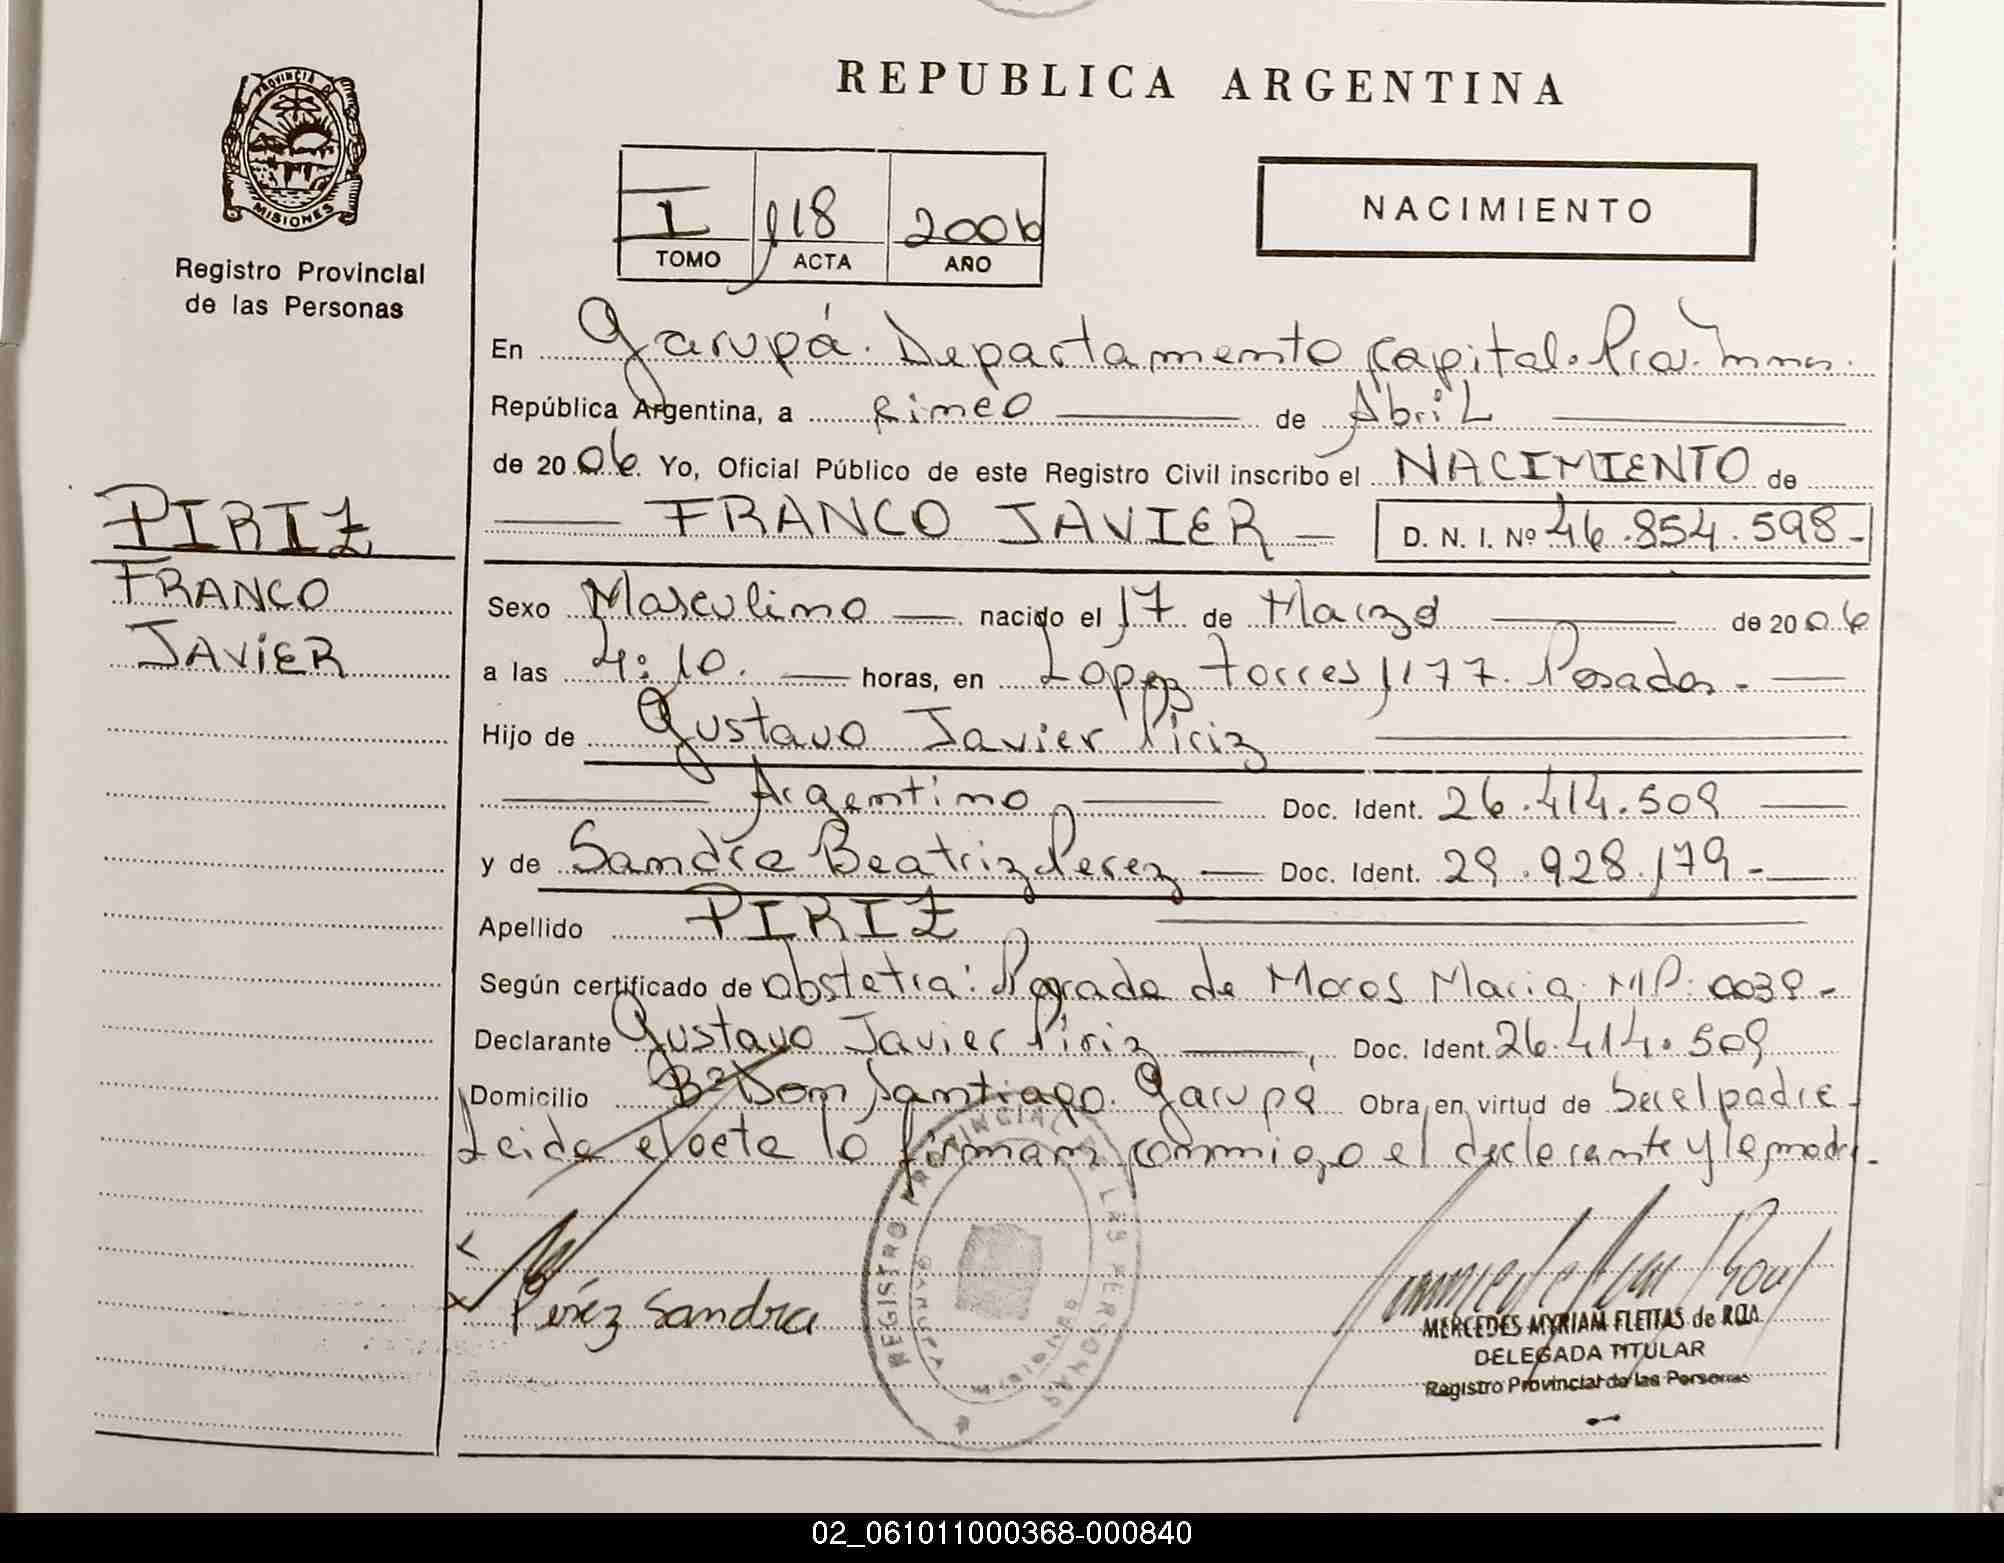 REPUBLICA ARGENTINA
PROVINCIA DE
MISIONES
Registro Provincial
de las Personas
I 118 2006
TOMO ACTA AÑO
NACIMIENTO
En Garupá. Departamento Capital. Prov. Mnes.
República Argentina, a cinco de Abril
de 2006. Yo, Oficial Público de este Registro Civil inscribo el NACIMIENTO de
FRANCO JAVIER - D. N. I. Nº 46.854.598-
PIRIZ
FRANCO
JAVIER
Sexo Masculino nacido el 17 de Marzo de 2006
a las 4:10. horas, en López Torres 1177. Posadas-
Hijo de Gustavo Javier Piriz
Argentino Doc. Ident. 26.414.509
y de Sandra Beatriz Perez Doc. Ident. 29.928.179-
Apellido PIRIZ
Según certificado de obstetra: de Maria MP: 0039-
Declarante Gustavo Javier Piriz, Doc. Ident. 26.414.509
Domicilio Bº Don Santiago. Garupá Obra en virtud de Ser el padre
Leida el acta la firman conmigo el declarante y la madre.
Pérez Sandra
REGISTRO PROVINCIAL DE LAS PERSONAS
MISIONES
MERCEDES MYRIAM FLEITAS de ROA
DELEGADA TITULAR
Registro Provincial de las Personas
02_061011000368-000840